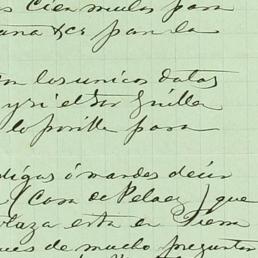 Cien mulas para
&cs para la
on los unicos datos
y si el Sor Guilla
lo posible para
digas ó mandes decir
(Casa de Pelaez) que
plaza esta en Tierra
ues de mucho preguntar